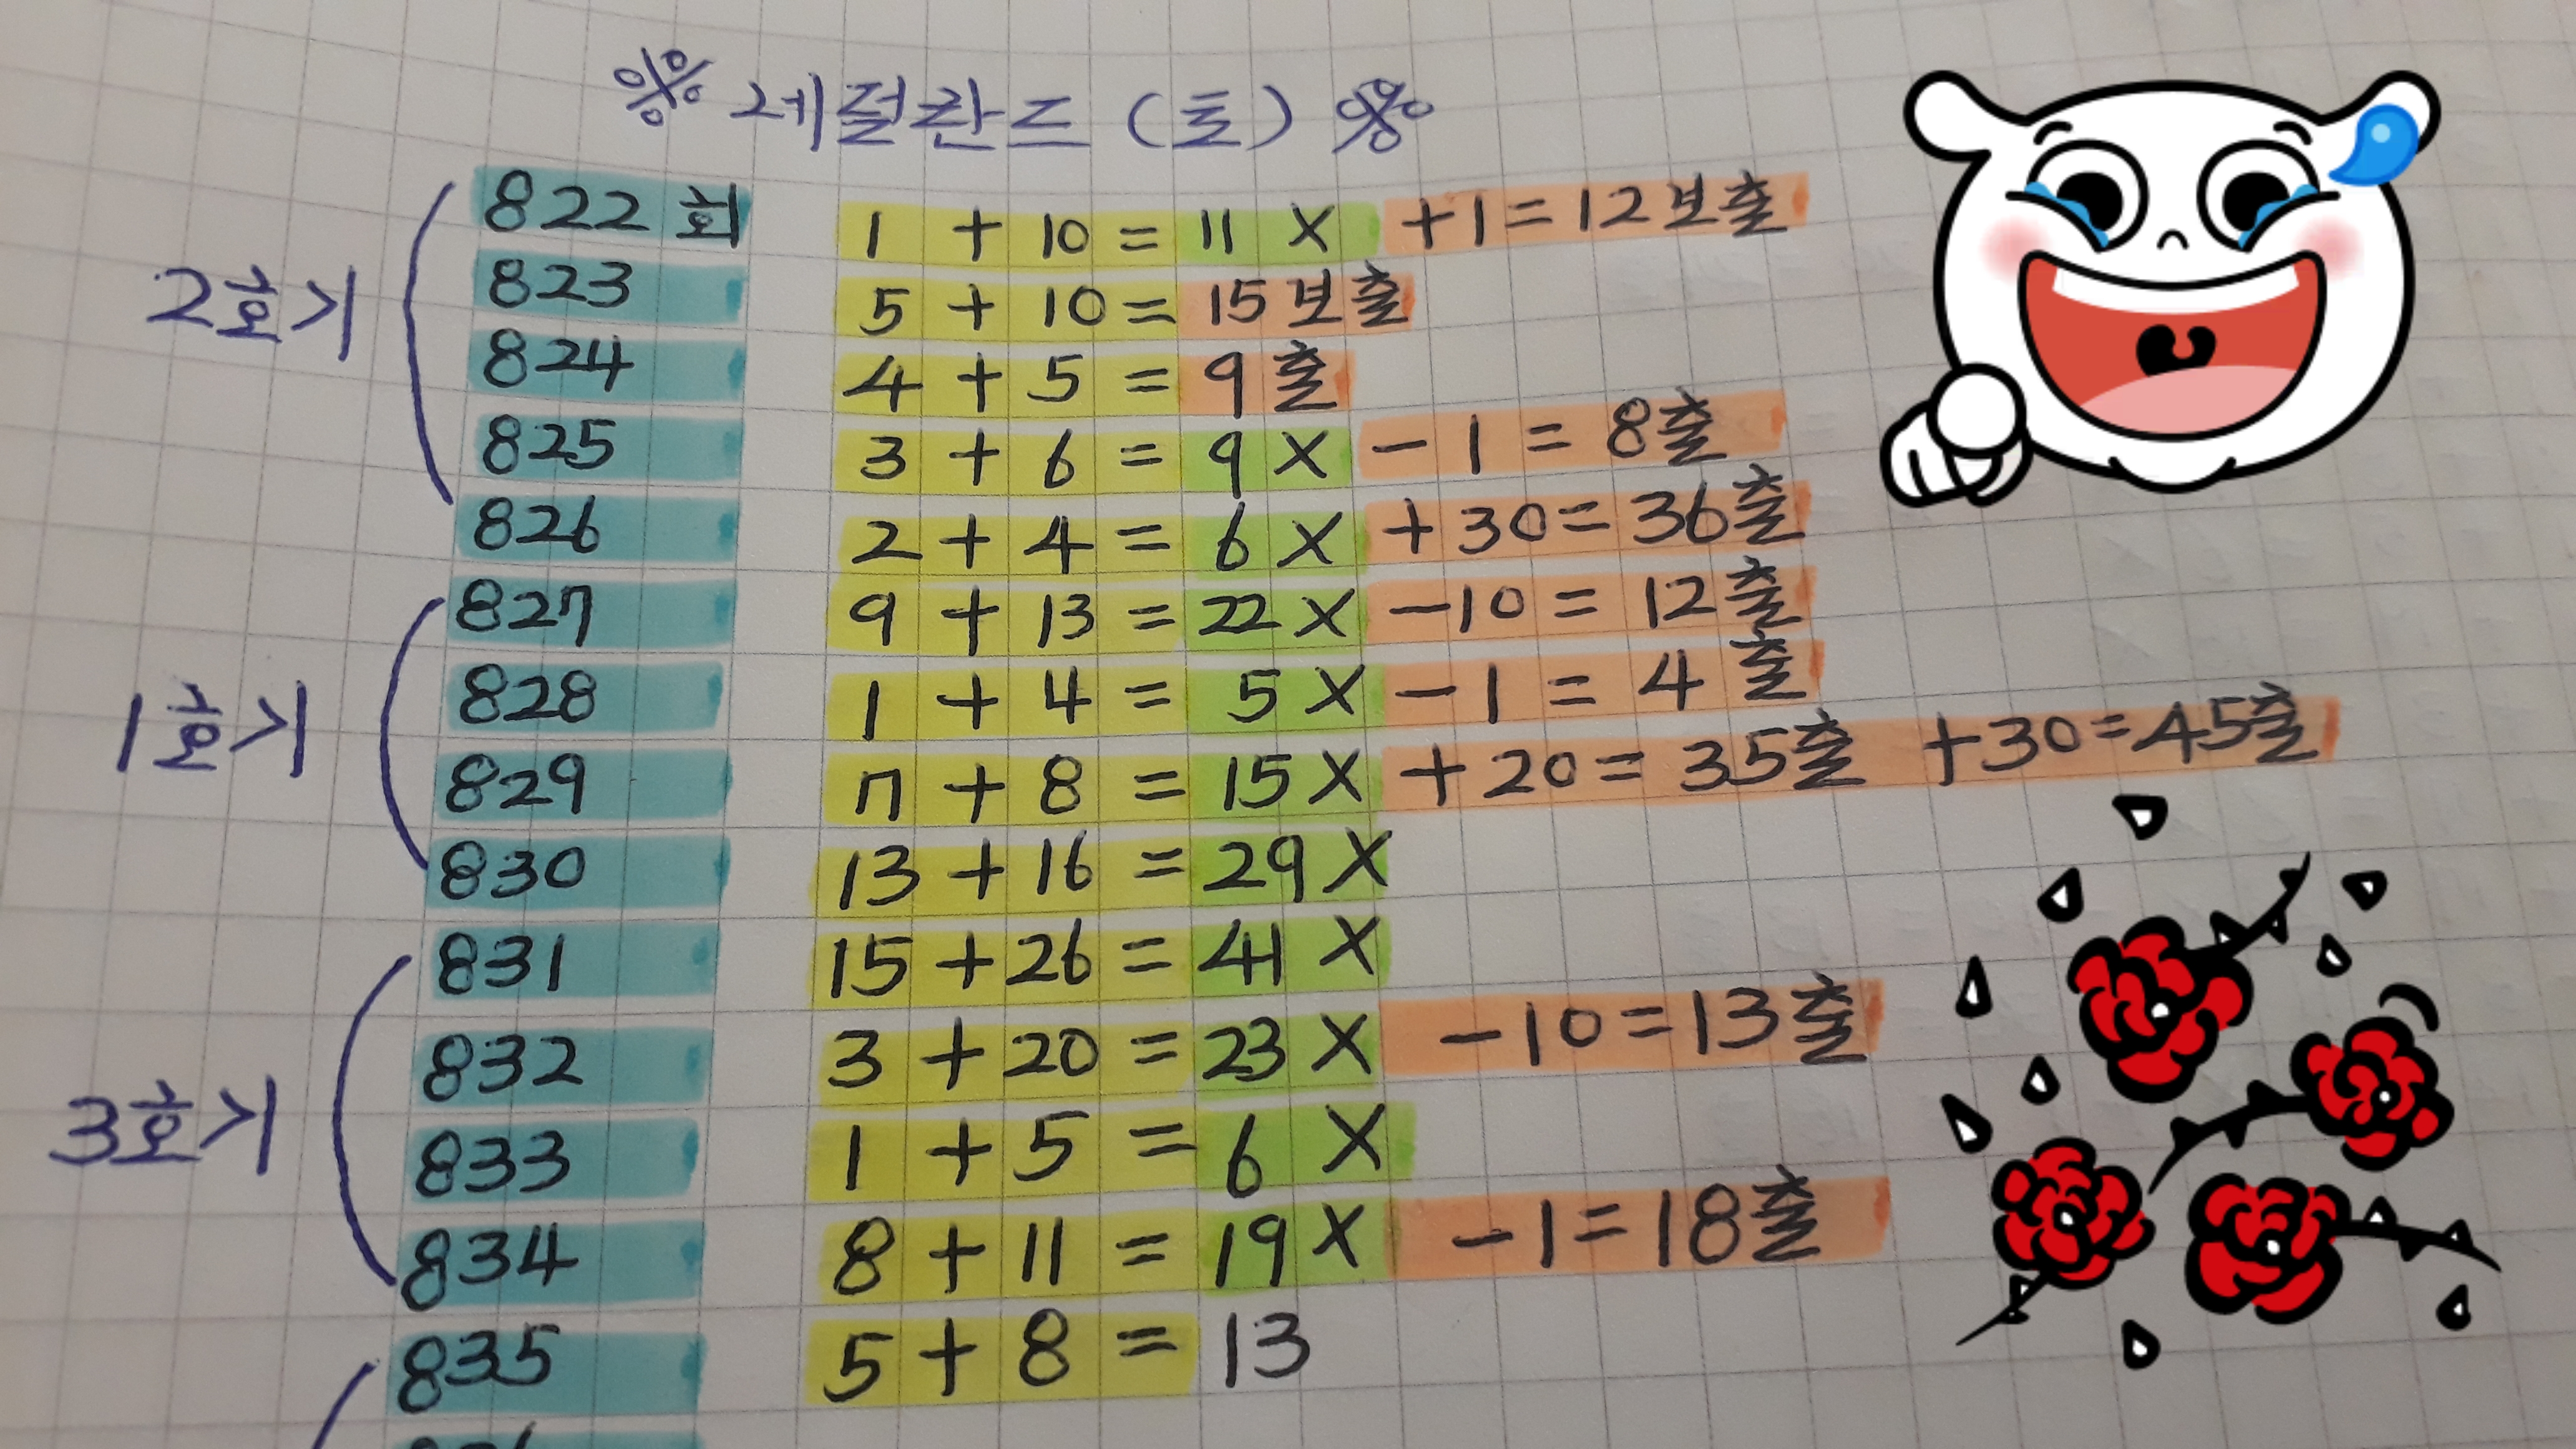 ※ 레절란드 (토) ※
822회 1 + 10 = 11 X +1 = 12보출
823 5 + 10 = 15보출
2호기
824 4 + 5 = 9출
825 3 + 6 = 9 X - 1 = 8출
826 2 + 4 = 6 X +30 = 36출
827 9 + 13 = 22 X -10 = 12출
1호기
828 1 + 4 = 5 X - 1 = 4출
829 7 + 8 = 15 X + 20 = 35출 +30 = 45출
830 13 + 16 = 29 X
831 15 + 26 = 41 X
832 3 + 20 = 23 X -10 = 13출
3호기
833 1 + 5 = 6 X
834 8 + 11 = 19 X -1 = 18출
835 5 + 8 = 13